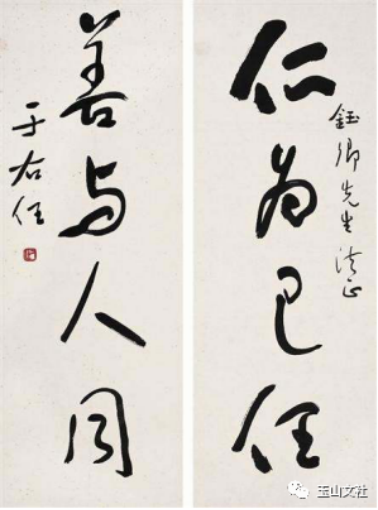 鈺卿先生法正
仁为己任
善与人同
于右任
玉山文社